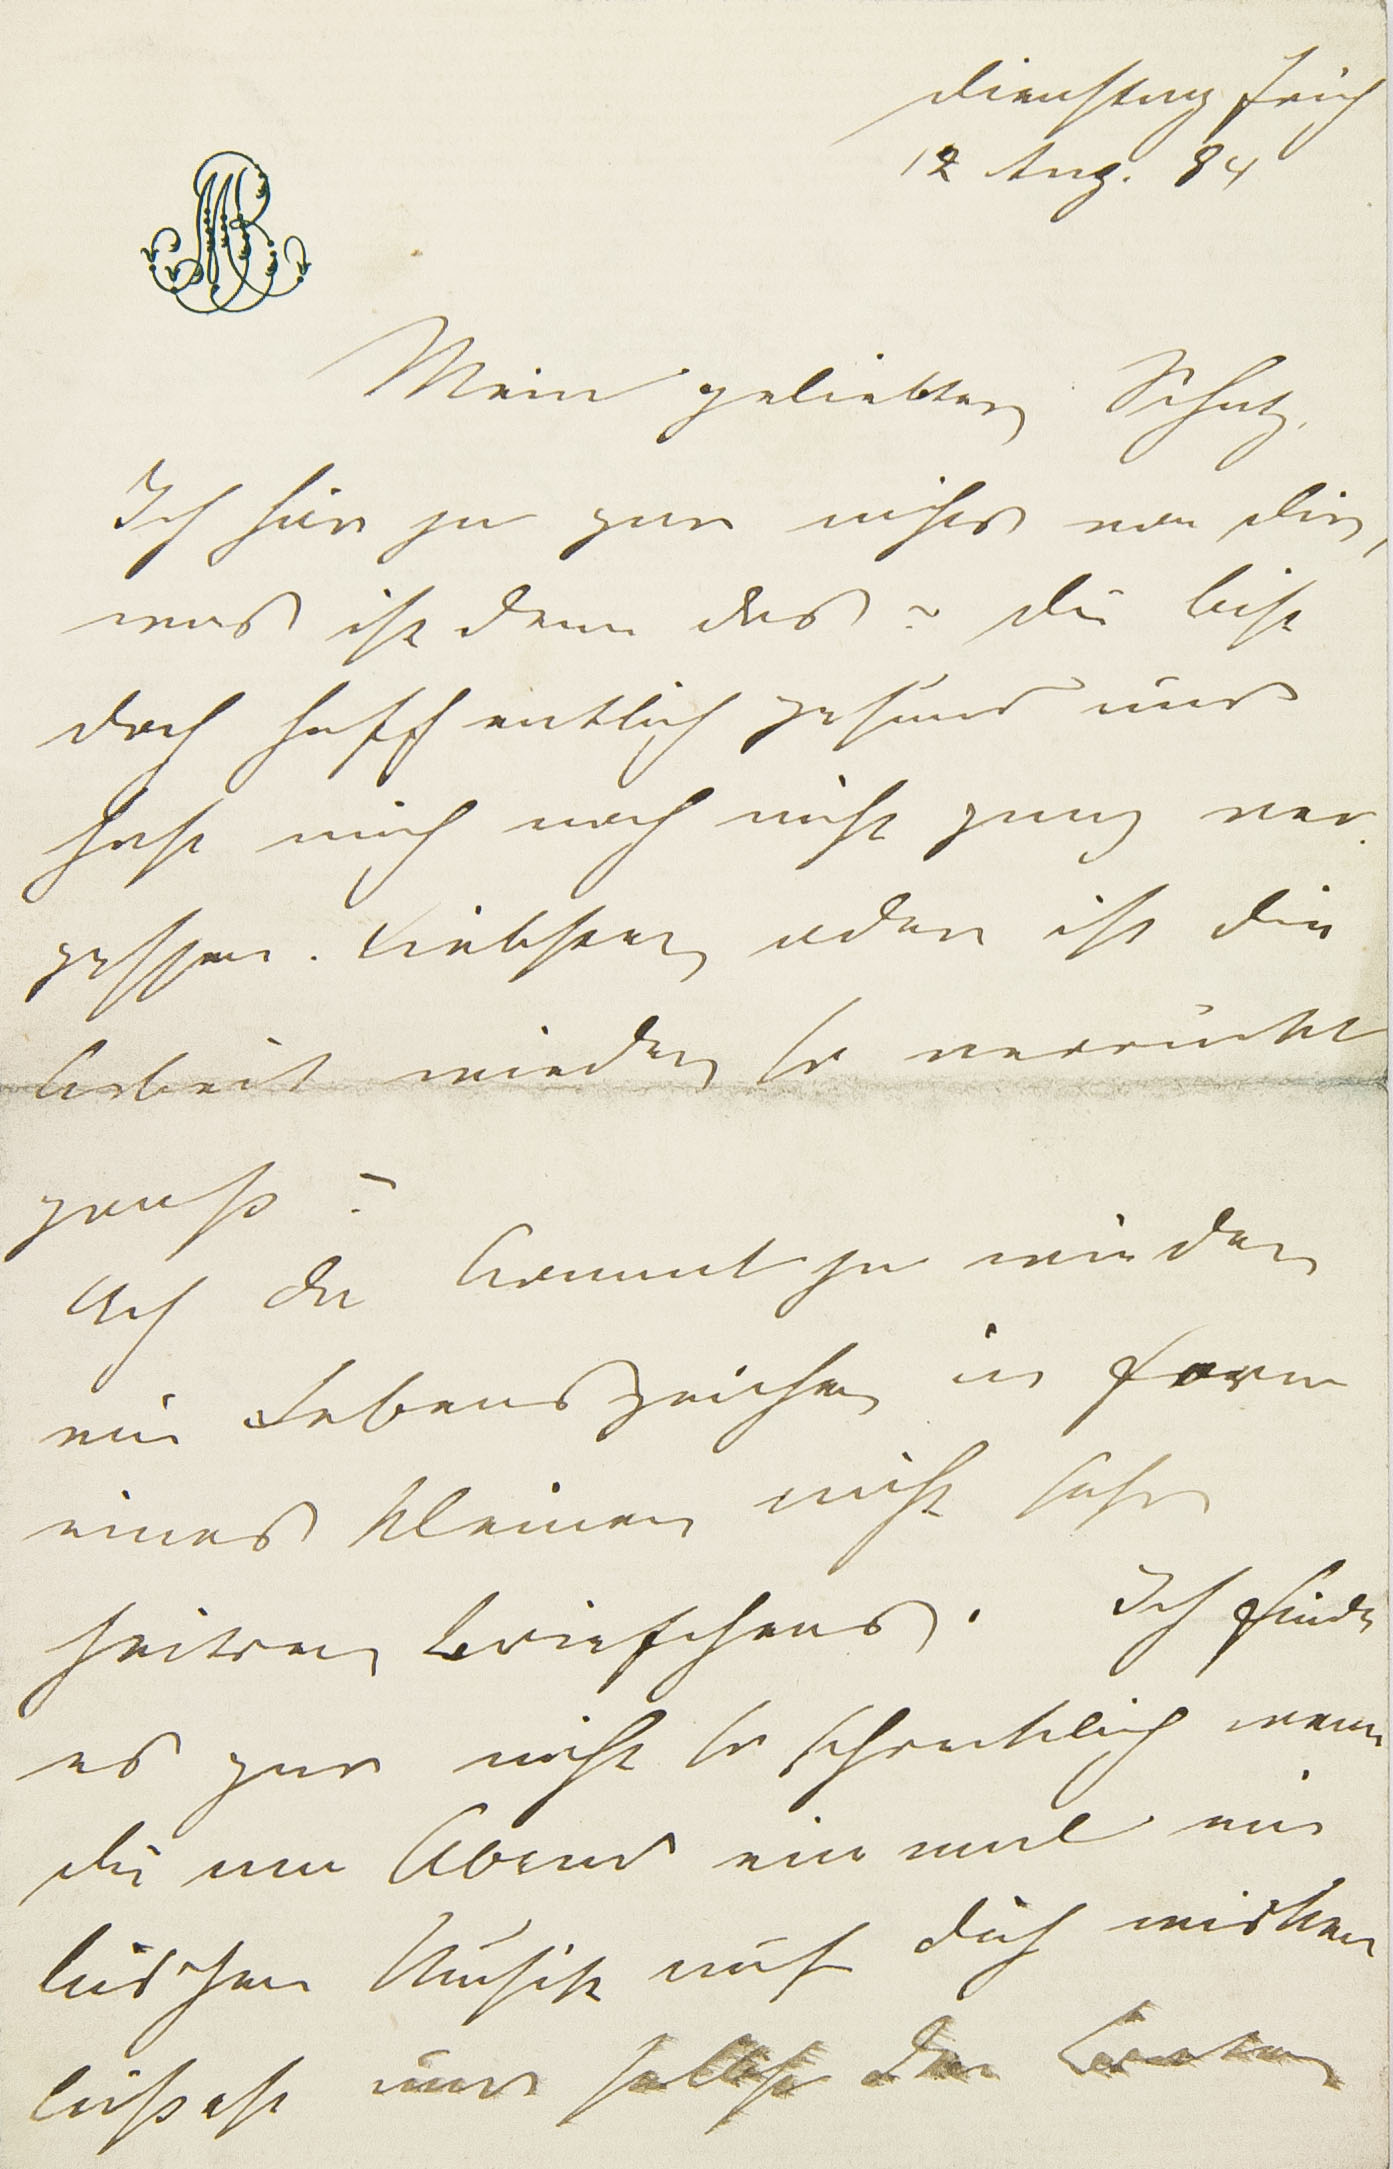 MB
Dienstag früh
12 Aug. 84
Mein geliebter Schatz.
Ich hör ja gar nichts von dir,
was ist denn das? du bist
doch hoffentlich gesund und
hast mich noch nicht ganz ver-
gessen. Liebster, oder ist die
Arbeit wieder so verrückt
groß?
Ach da kommt ja wieder
ein Lebenszeichen in Form
eines kleinen nicht sehr
heitren Briefchens. Ich finde
es gar nicht so schrecklich wenn
du am Abend einmal ein
bischen Musik auf dich wirken
ließest und selbst der